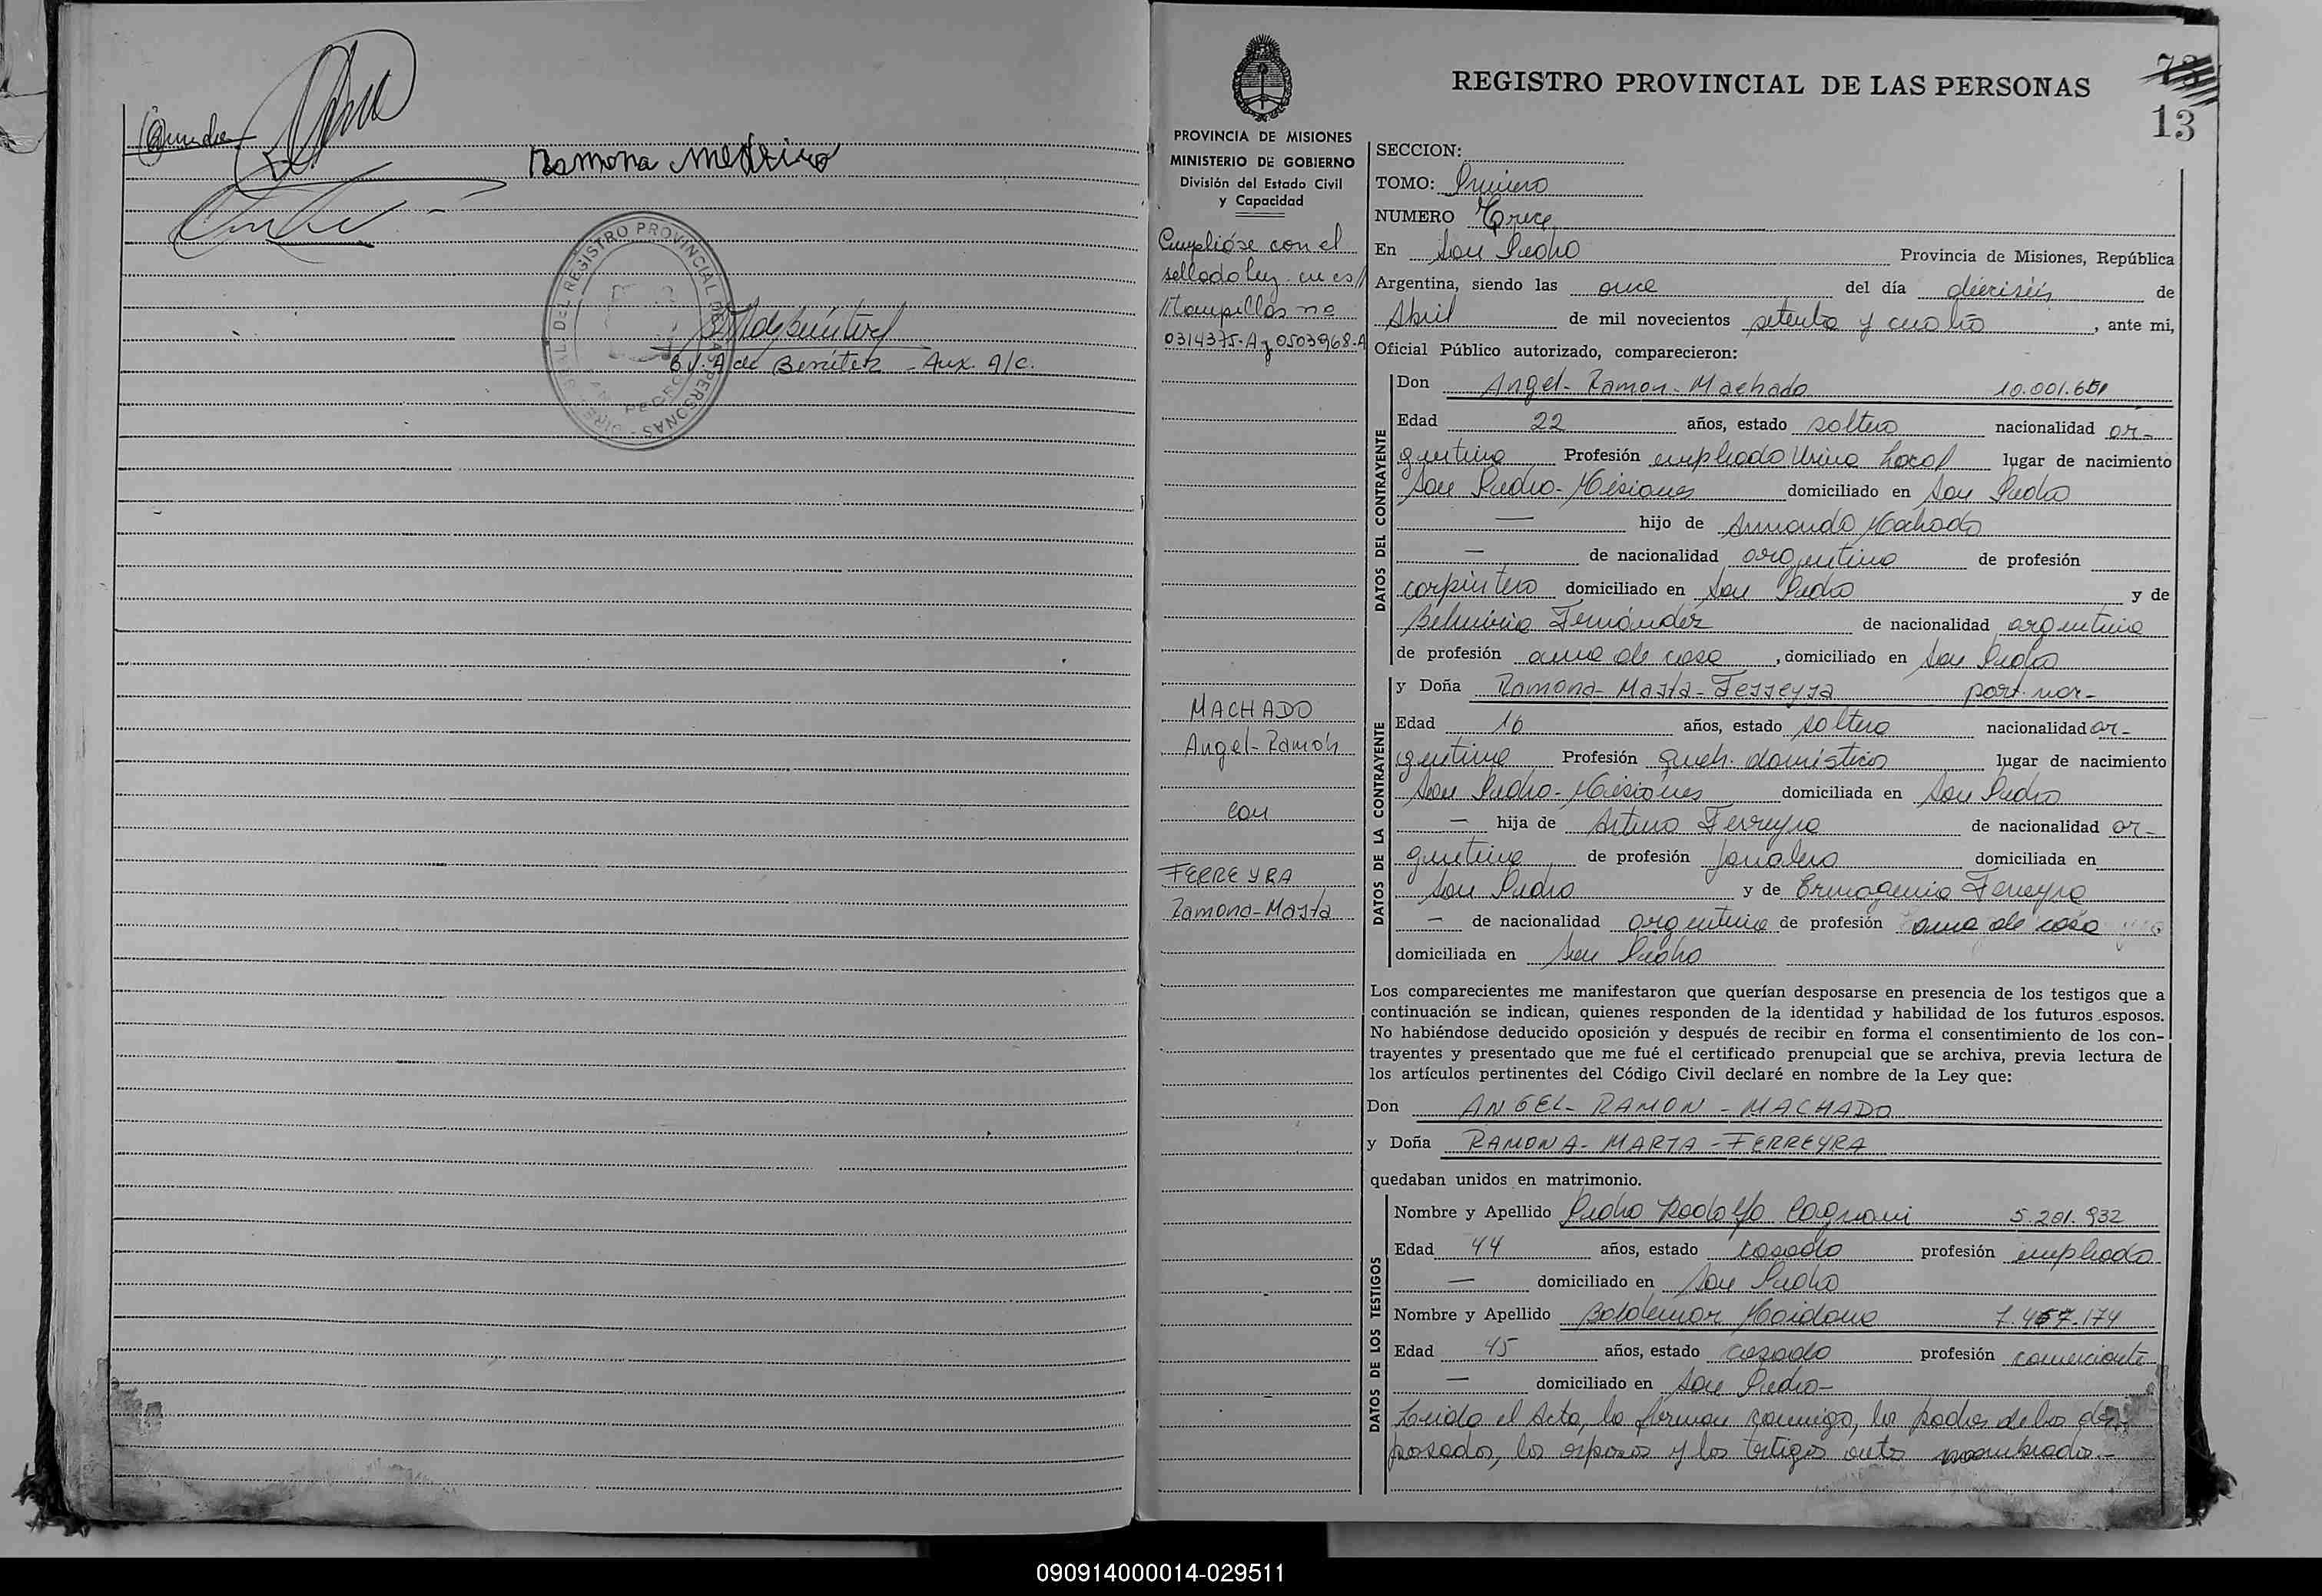 Ramona Medrino
REGISTRO PROVINCIAL DE LAS PERSONAS
SAN PEDRO
E. J. A de Benítez - Aux. A/C.
73
13
REGISTRO PROVINCIAL DE LAS PERSONAS
PROVINCIA DE MISIONES
MINISTERIO DE GOBIERNO
División del Estado Civil
y Capacidad
Cumplióse con el
sellado ley en es/
tampillas no
0314375-A y 0503968-A
MACHADO
Angel-Ramón
con
FERREYRA
Ramona-Marta
SECCION:
TOMO: Primero
NUMERO Trece
En San Pedro Provincia de Misiones, República
Argentina, siendo las once del día dieciséis de
Abril de mil novecientos setenta y cuatro, ante mi,
Oficial Público autorizado, comparecieron:
DATOS DEL CONTRAYENTE
Don Angel-Ramon-Machado 10.001.651
Edad 22 años, estado soltero nacionalidad ar-
gentino Profesión empleado Usina Local lugar de nacimiento
San Pedro-Misiones domiciliado en San Pedro
— hijo de Armando Machado
— de nacionalidad argentino de profesión
carpintero domiciliado en San Pedro y de
Belmiria Fernández de nacionalidad argentina
de profesión ama de casa, domiciliado en San Pedro
DATOS DE LA CONTRAYENTE
y Doña Ramona-Marta-Ferreyra part. nac-
Edad 16 años, estado soltera nacionalidad ar-
gentina Profesión queh. domésticos lugar de nacimiento
San Pedro-Misiones domiciliada en San Pedro
— hija de Arturo Ferreyra de nacionalidad ar-
gentino de profesión jornalero domiciliada en
San Pedro y de Ermogenia Ferreyra
— de nacionalidad argentina de profesión ama de casa
domiciliada en San Pedro
Los comparecientes me manifestaron que querían desposarse en presencia de los testigos que a
continuación se indican, quienes responden de la identidad y habilidad de los futuros esposos.
No habiéndose deducido oposición y después de recibir en forma el consentimiento de los con-
trayentes y presentado que me fué el certificado prenupcial que se archiva, previa lectura de
los artículos pertinentes del Código Civil declaré en nombre de la Ley que:
Don ANGEL-RAMON-MACHADO
y Doña RAMONA-MARTA-FERREYRA
quedaban unidos en matrimonio.
DATOS DE LOS TESTIGOS
Nombre y Apellido Pedro Rodolfo Cagnani 5.201.932
Edad 44 años, estado casado profesión empleado
— domiciliado en San Pedro
Nombre y Apellido Baldemar Maidana 7.467.174
Edad 45 años, estado casado profesión comerciante
— domiciliado en San Pedro-
Leída el Acta, la firman conmigo, los padres de los des-
posados, los esposos y los testigos antes nombrados.-
090914000014-029511